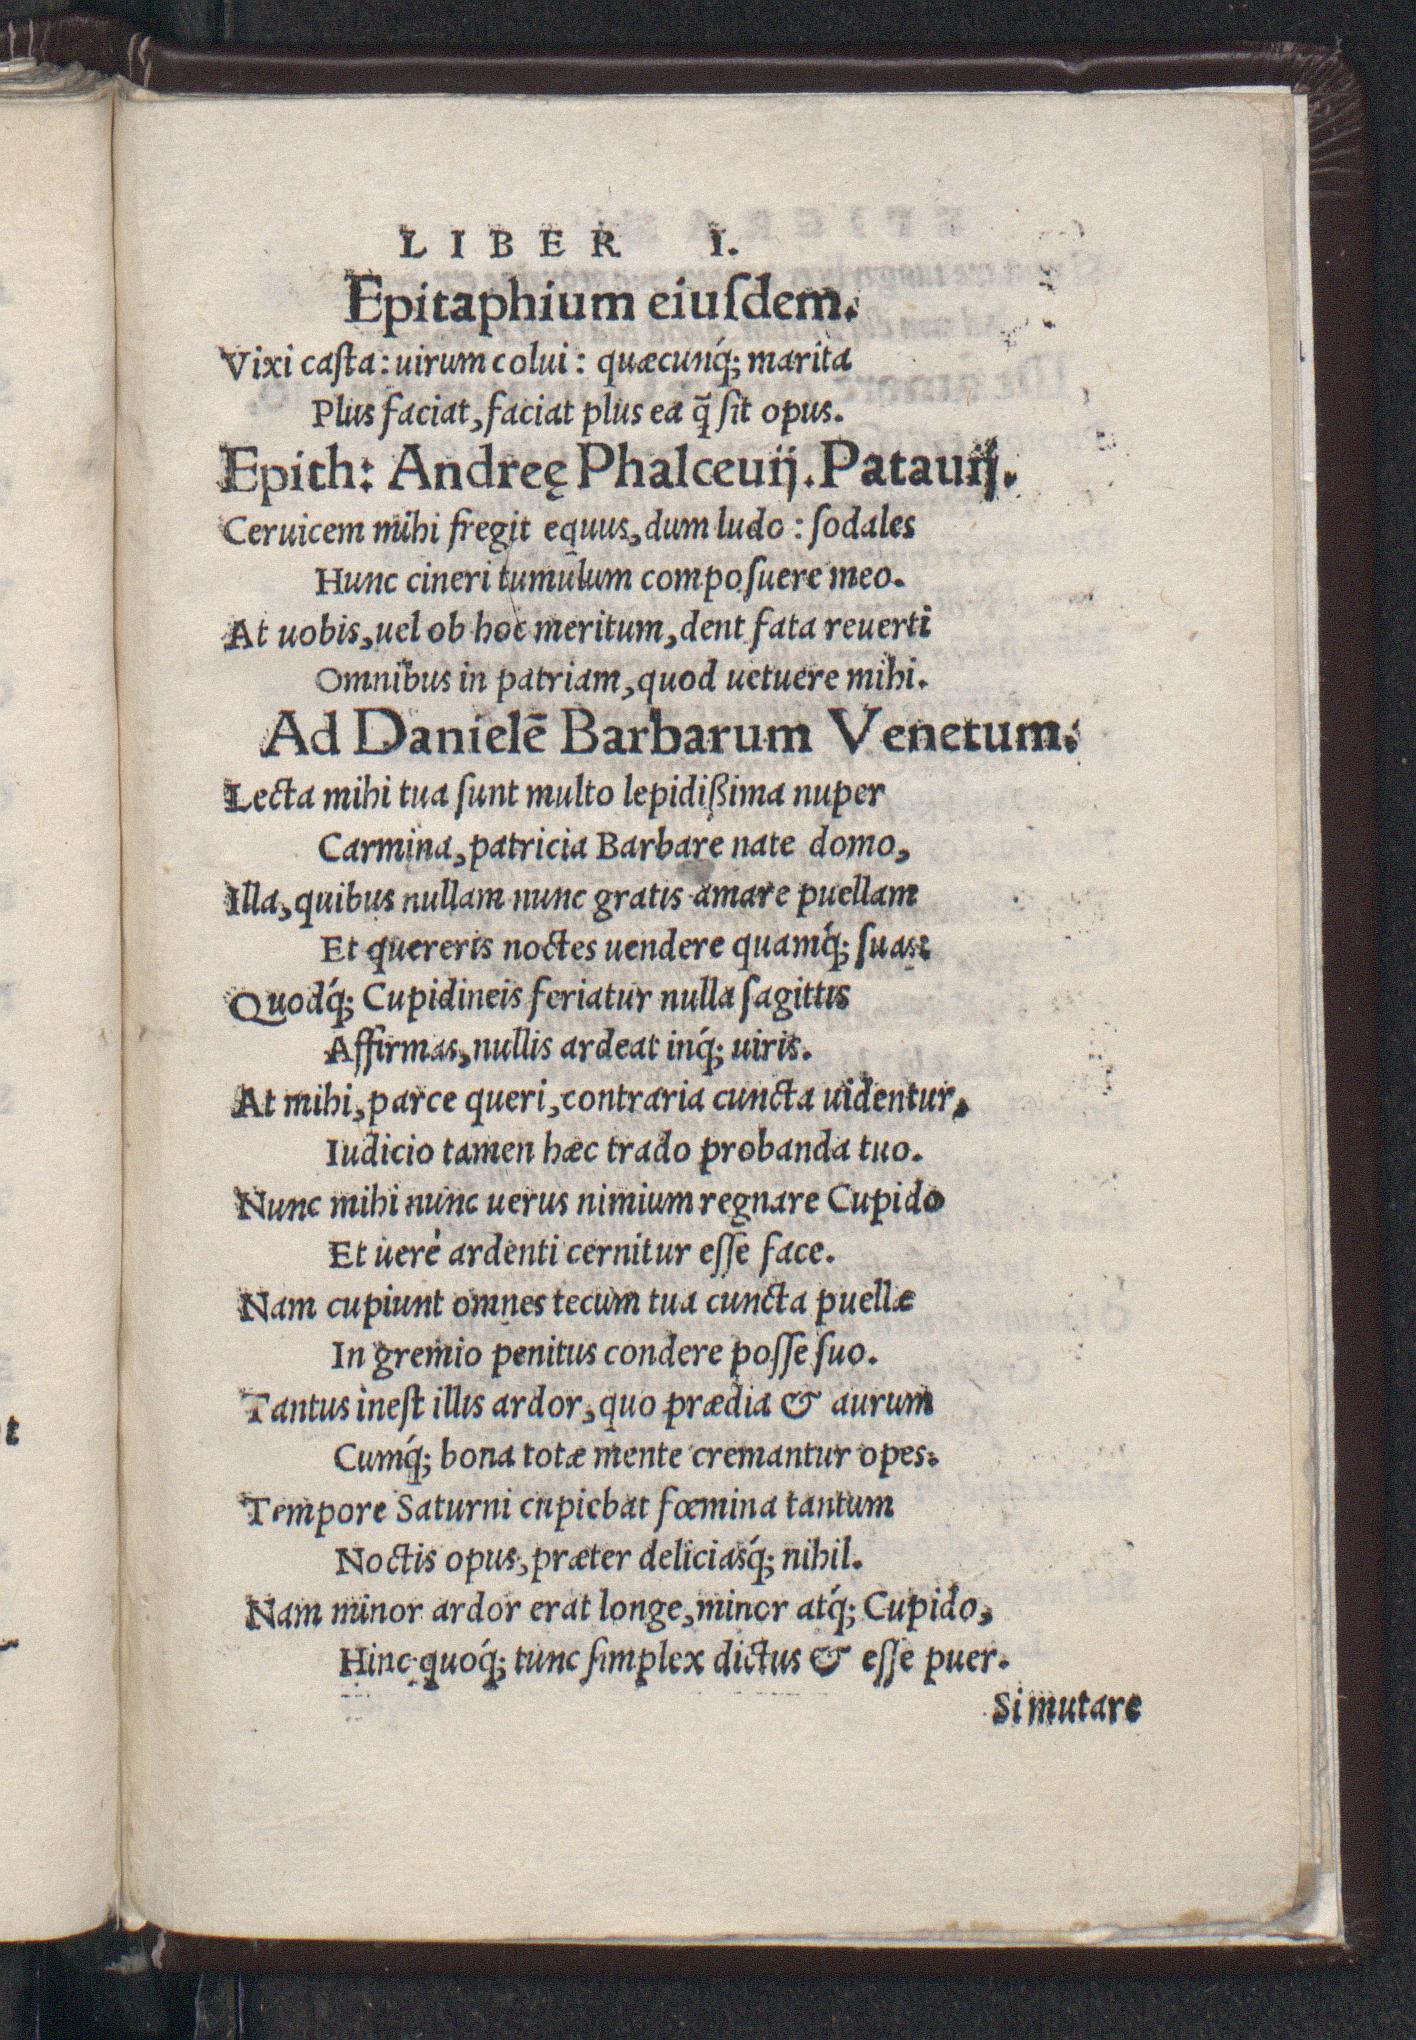 LIBER I.
Epitaphium eiuſdem.
Vixi caſta: uirum colui: quæcunq́; marita
Plus faciat, faciat plus ea q̃ ſit opus.
Epith: Andreę Phalceuij. Patauij.
Ceruicem mihi fregit equus, dum ludo: ſodales
Hunc cineri tumulum compoſuere meo.
At uobis, uel ob hoc meritum, dent fata reuerti
Omnibus in patriam, quod uetuere mihi.
Ad Danielē Barbarum Venetum.
Lecta mihi tua ſunt multo lepidißima nuper
Carmina, patricia Barbare nate domo,
Illa, quibus nullam nunc gratis amare puellam
Et quereris noctes uendere quamq́; ſuas:
Quodq́; Cupidineis feriatur nulla ſagittis
Affirmas, nullis ardeat inq́; uiris.
At mihi, parce queri, contraria cuncta uidentur,
Iudicio tamen hæc trado probanda tuo.
Nunc mihi nunc uerus nimium regnare Cupido
Et uerè ardenti cernitur eſſe face.
Nam cupiunt omnes tecum tua cuncta puellæ
In gremio penitus condere poſſe ſuo.
Tantus ineſt illis ardor, quo prædia & aurum
Cumq́; bona totæ mente cremantur opes.
Tempore Saturni cupiebat fœmina tantum
Noctis opus, præter deliciasq́; nihil.
Nam minor ardor erat longe, minor atq́; Cupido,
Hinc quoq́; tunc ſimplex dictus & eſſe puer.
Si mutare